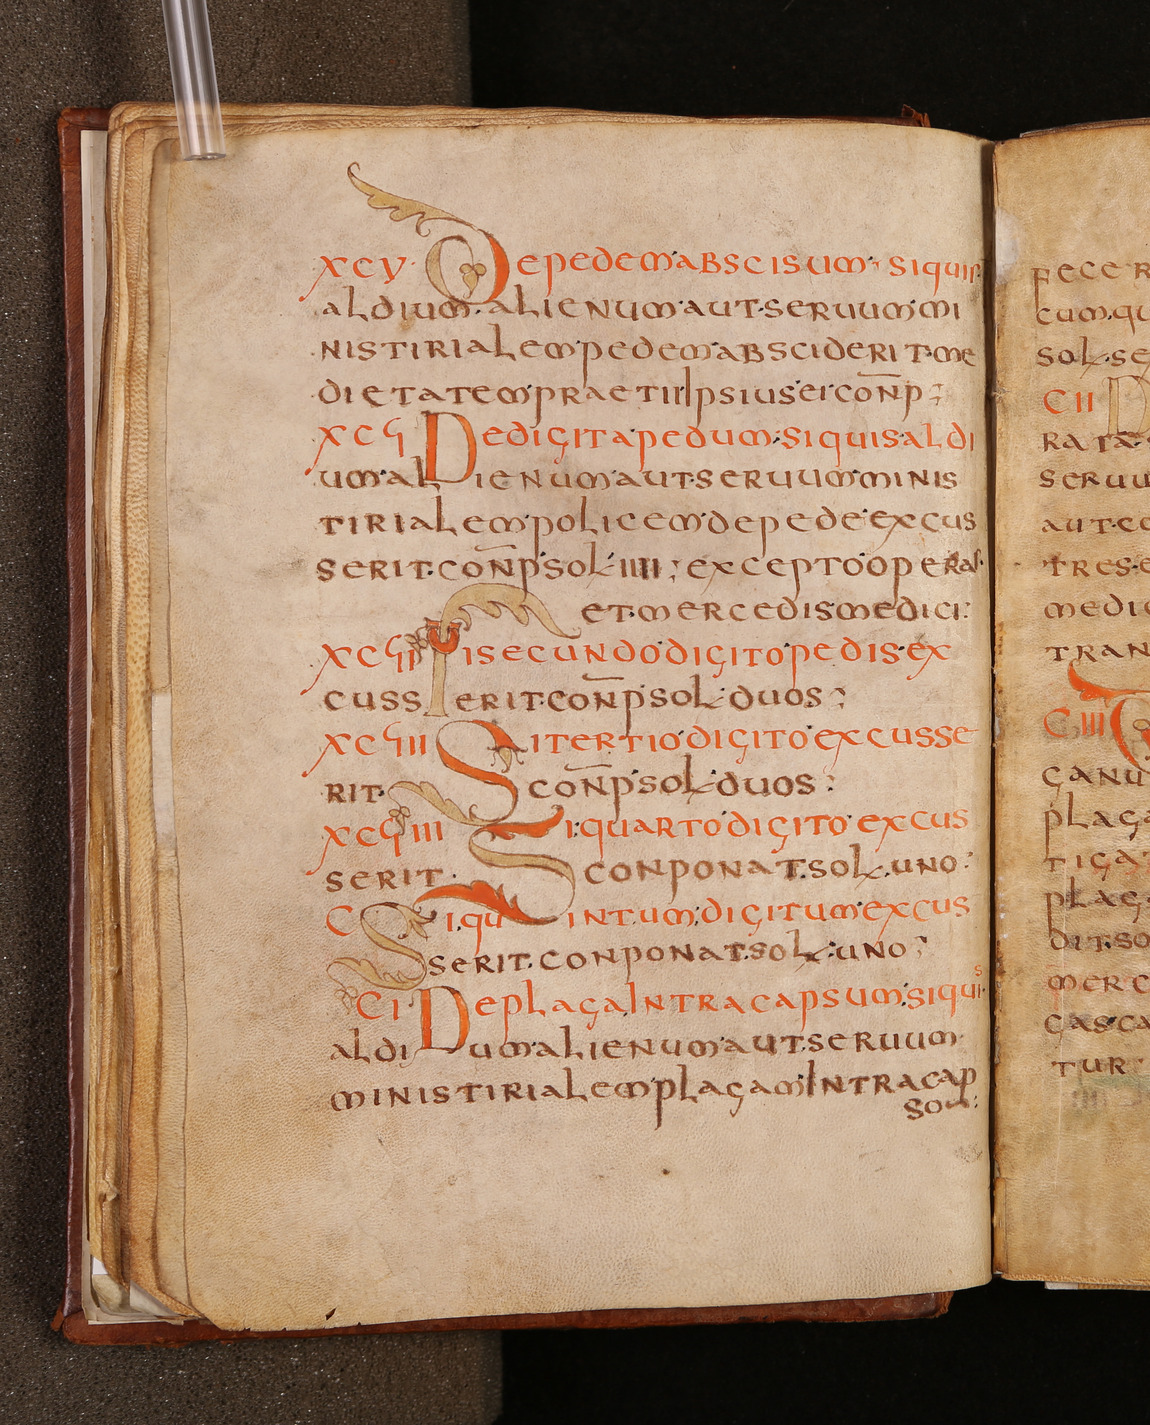 XCV· De pedem·abscisum· si quis
aldium·alienum·aut·seruum·mi
nistirialem·pedem·absciderit·me
dietatem·praetii ipsius·ei·con̅p;
XCϛ De digita·pedum·si quis·aldi
um·alienum·aut·seruum·minis
tirialem·policem·de pede·excus
serit·con̅p·sol·IIII; excepto·operas·
et·mercedis·medici:
XCϛI Si secundo·digito·pedis·ex
cusserit·con̅p·sol·duos;
XCϛII Si tertio·digito·excusse
rit· con̅p·sol·duos:
XCϛIII Si·quarto·digito·excus
serit· conponat·sol·uno:
C Si·quintum·digitum·excus
serit·conponat·sol·uno;
CI De plaga·intra capsum·si quis·
aldium·alienum·aut·seruum·
ministirialem·plagam·intra cap
som:
fecer
cum·qu
sol·se
CII D
seruu
aut·co
tres·e
medic
tran
CIII
ganu
plaga
tiga
plag
dit·so
merc
cas·ca
tur